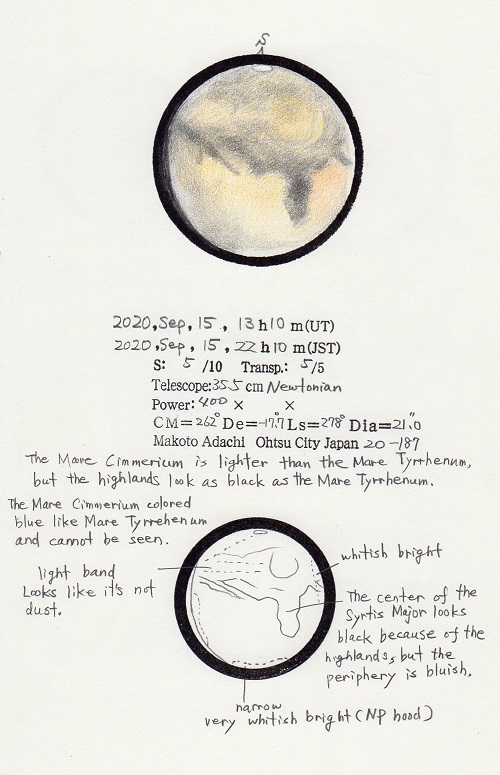 S
2020, Sep, 15, 13 h 10 m (UT)
2020, Sep, 15, 22 h 10 m (JST)
S: 5 /10 Transp.: 5/5
Telescope: 355 cm Newtonian
Power: 400 × ×
CM=262° De=-17.°7 Ls=278° Dia=21."0
Makoto Adachi Ohtsu City Japan 20-187
The Mare Cimmerium is lighter than the Mare Tyrrhenum,
but the highlands look as black as the Mare Tyrrhenum.
The Mare Cimmerium colored
blue like Mare Tyrrehenum
and cannot be seen.
light band
Looks like it's not
dust.
whitish bright
The center of the
Syrtis Major looks
black because of the
highlands, but the
periphery is bluish.
narrow
very whitish bright (NP hood)